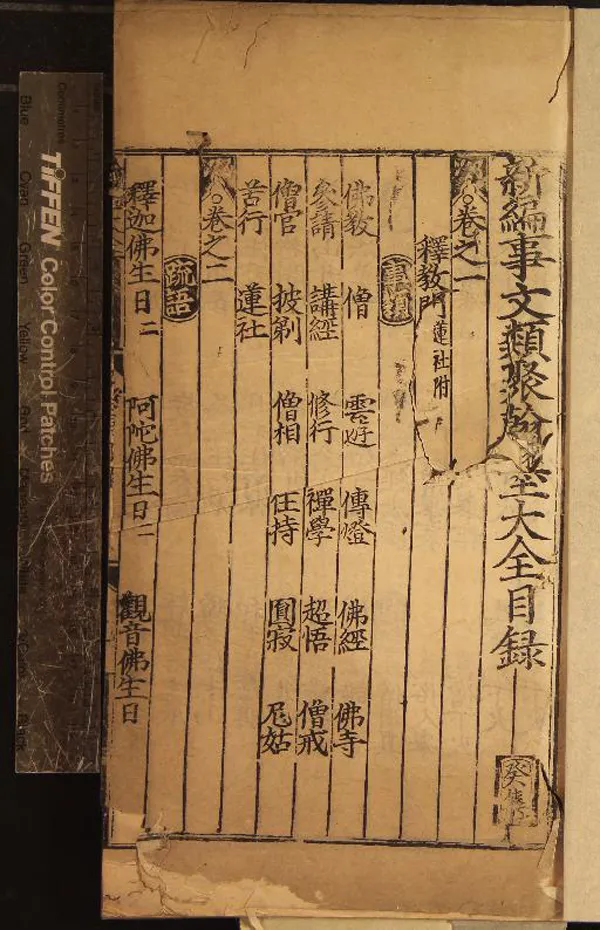 新編事文類聚翰墨大全目録
癸集
卷之一
釋教門 蓮社附
事類
佛教 僧 雲遊 傳燈 佛經 佛寺
參請 講經 修行 禪學 超悟 僧戒
僧官 披剃 僧相 住持 圓寂 尼姑
苦行 蓮社
卷之二
疏語
釋迦佛生日二 阿陀佛生日二 觀音佛生日
TIFFEN Color Control Patches
Centimetres
Blue
Cyan
Green
Yellow
Red
Black